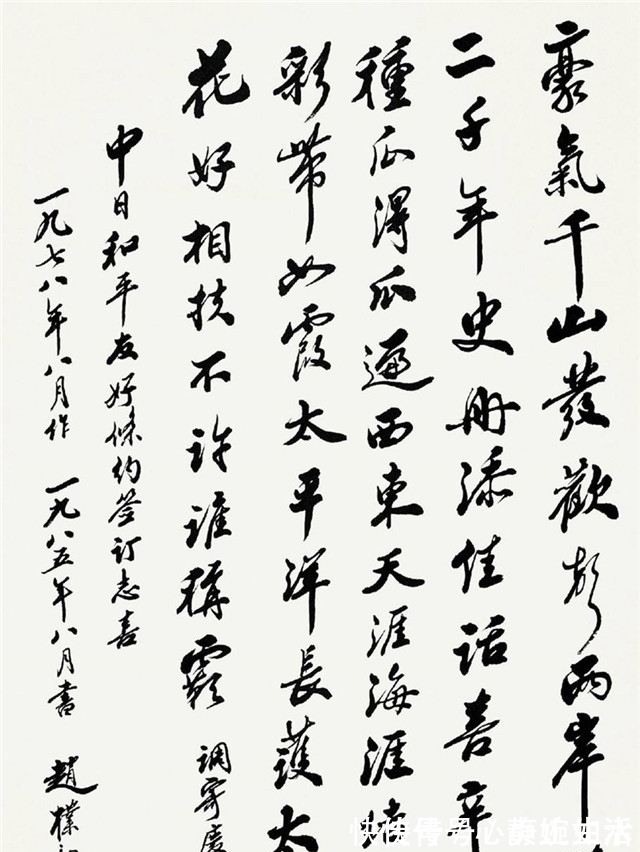 豪氣千山發歡聲兩岸
二千年史册添佳話喜辛
種瓜得瓜遍西東天涯海涯
彩帶如霞太平洋長護太
花好相扶不許誰稱霸 調寄慶
中日和平友好條約签訂志喜
一九七八年八月作 一九八五年八月書 趙樸初